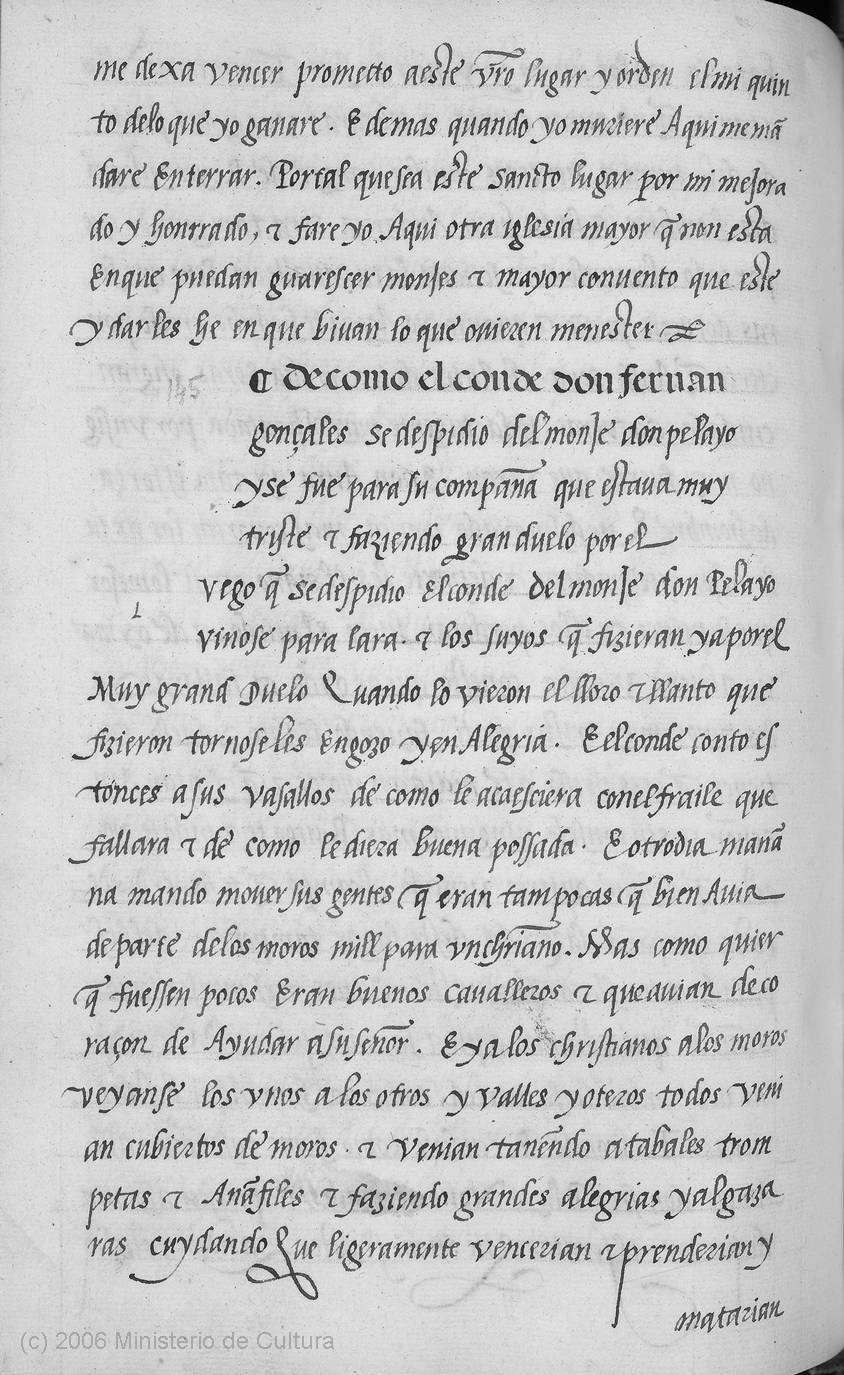 me dexa vencer prometto aeste vr̃o lugar y orden el mi quin
to delo que yo ganare. E demas quando yo muriere Aqui me mã
dare Enterrar. Portal que sea este sancto lugar por mi mejora
do y honrrado, τ fare yo Aqui otra iglesia mayor q̃ non esta
Enque puedan guarescer monjes τ mayor convento que este
y darles he en que bivan lo que ovieren menester
145 ¶ de como el conde don fernan
gonçales se despidio del monje don pelayo
y se fue para su compañã que estava muy
triste τ faziendo gran duelo por el
l vego q̃ se despidio El conde del monje don Pelayo
vinose para lara. τ los suyos q̃ fizieran ya por el
Muy grand Duelo Quando lo vieron el lloro τ llanto que
fizieron tornoseles Engozo y en Alegria. E el conde conto es
tonces a sus vasallos de como le acaesciera con el fraile que
fallara τ de como le diera buena possada. E otro dia mañã
na mando mover sus gentes q̃ eran tam pocas q̃ bien Avia
de parte delos moros mill para vn chriãno. Mas como quier
q̃ fuessen pocos Eran buenos cavalleros τ que avian de co
raçon de Ayudar a su señor. E ya los christianos a los moros
veyanse los vnos a los otros y valles y oteros todos veni
an cubiertos de moros. τ venian tanẽndo atabales trom
petas τ Anãfiles τ faziendo grandes alegrias y algaza
ras cuydando Que ligeramente vencerian τ prenderian y
matarian
(c) 2006 Ministerio de Cultura